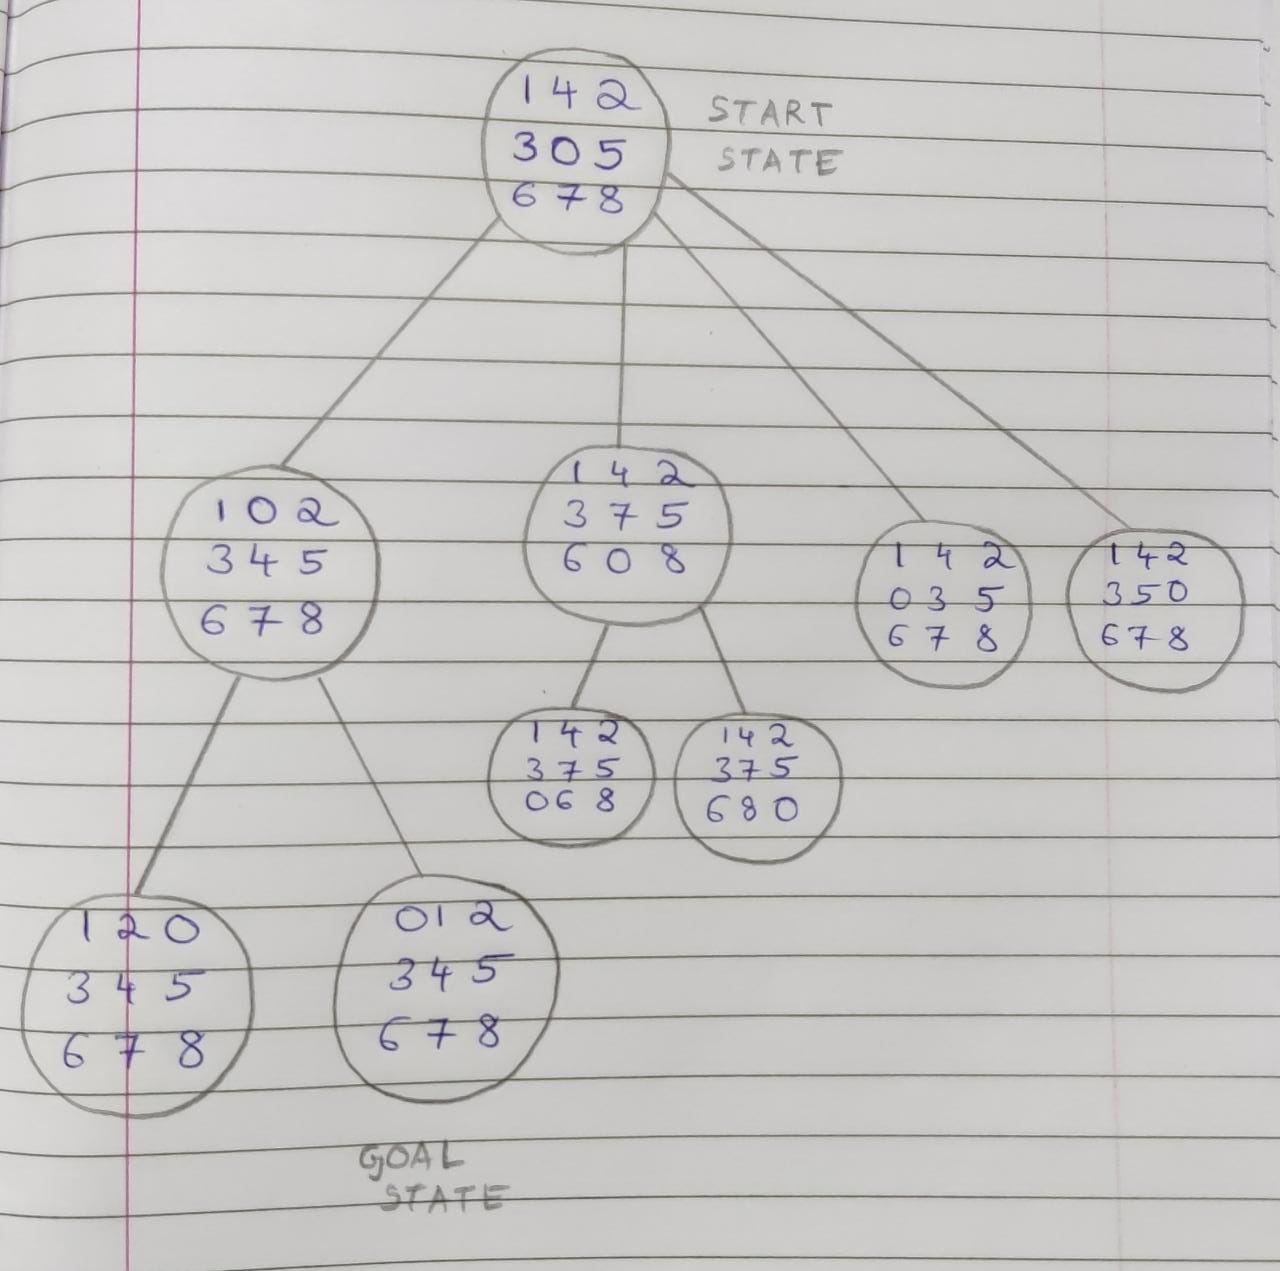 1 4 2
3 0 5
6 7 8
START
STATE
1 0 2
3 4 5
6 7 8
1 4 2
3 7 5
6 0 8
1 4 2
0 3 5
6 7 8
1 4 2
3 5 0
6 7 8
1 4 2
3 7 5
0 6 8
1 4 2
3 7 5
6 8 0
1 2 0
3 4 5
6 7 8
0 1 2
3 4 5
6 7 8
GOAL
STATE